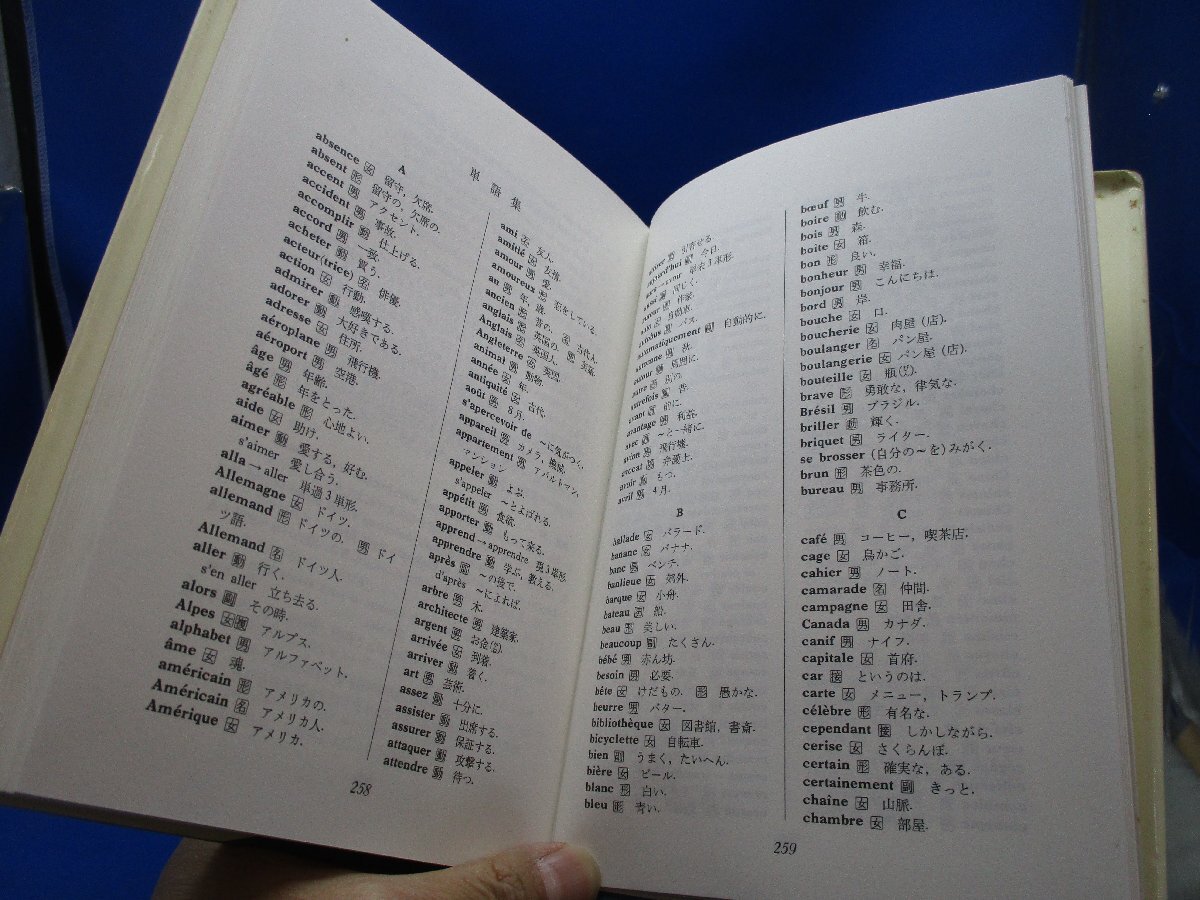 単語集
A
absence 女 留守, 欠席.
absent 形 留守の, 欠席の.
accent 男 アクセント.
accident 男 事故.
accomplir 動 仕上げる.
accord 男 一致.
acheter 動 買う.
acteur(trice) 名 俳優.
action 女 行動.
admirer 動 感嘆する.
adorer 動 大好きである.
adresse 女 住所.
aéroplane 男 飛行機.
aéroport 男 空港.
âge 男 年齢.
âgé 形 年をとった.
agréable 形 心地よい.
aide 女 助け.
aimer 動 愛する, 好む.
s'aimer 愛し合う.
alla→aller 単過3単形.
Allemagne 女 ドイツ.
allemand 形 ドイツの. 男 ドイ
ツ語.
Allemand 名 ドイツ人.
aller 動 行く.
s'en aller 立ち去る.
alors 副 その時.
Alpes 女複 アルプス.
alphabet 男 アルファベット.
âme 女 魂.
américain 形 アメリカの.
Américain 名 アメリカ人.
Amérique 女 アメリカ.
ami 名 友人.
amitié 女 友情.
amour 男 愛.
amoureux 形 恋をしている.
an 男 年, 歳.
ancien 形 昔の. 名 古代人.
anglais 形 英国の. 男 英語.
Anglais 名 英国人.
Angleterre 女 英国.
animal 男 動物.
année 女 年.
antiquité 女 古代.
août 男 8月.
s'apercevoir de ～に気がつく.
appareil 男 カメラ, 機械.
appartement 男 アパルトマン,
マンション
appeler 動 よぶ.
s'appeler ～とよばれる.
appétit 男 食欲.
apporter 動 もって来る.
apprend→apprendre 現3単形
apprendre 動 学ぶ, 教える.
après 前 ～の後で.
d'après ～によれば.
arbre 男 木.
architecte 男 建築家.
argent 男 お金(銀).
arrivée 女 到着.
arriver 動 着く.
art 男 芸術.
assez 副 十分に.
assister 動 出席する.
assurer 動 保証する.
attaquer 動 攻撃する.
attendre 動 待つ.
258
引寄せる.
aujourd'hui 副 今日.
単未3単形.
同じく.
作家.
自動車.
バス.
automatiquement 副 自動的に.
automne 男 秋.
autour 副 周囲に.
autre 形 別の.
autrefois 副 昔.
avant 前 前に.
avantage 男 利益.
avec 前 ～と一緒に.
avion 男 飛行機.
avocat 男 弁護士.
avoir 動 もつ.
avril 男 4月.
B
ballade 女 バラード.
banane 女 バナナ.
banc 男 ベンチ.
banlieue 女 郊外.
barque 女 小舟.
bateau 男 船.
beau 形 美しい.
beaucoup 副 たくさん.
bébé 男 赤ん坊.
besoin 男 必要.
bête 女 けだもの. 形 愚かな.
beurre 男 バター.
bibliothèque 女 図書館, 書斎.
bicyclette 女 自転車.
bien 副 うまく, たいへん.
bière 女 ビール.
blanc 形 白い.
bleu 形 青い.
bœuf 男 牛.
boire 動 飲む.
bois 男 森.
boîte 女 箱.
bon 形 良い.
bonheur 男 幸福.
bonjour 男 こんにちは.
bord 男 岸.
bouche 女 口.
boucherie 女 肉屋 (店).
boulanger 名 パン屋.
boulangerie 女 パン屋 (店).
bouteille 女 瓶(びん).
brave 形 勇敢な, 律気な.
Brésil 男 ブラジル.
briller 動 輝く.
briquet 男 ライター.
se brosser (自分の～を)みがく.
brun 形 茶色の.
bureau 男 事務所.
C
café 男 コーヒー, 喫茶店.
cage 女 鳥かご.
cahier 男 ノート.
camarade 名 仲間.
campagne 女 田舎.
Canada 男 カナダ.
canif 男 ナイフ.
capitale 女 首府.
car 接 というのは.
carte 女 メニュー, トランプ.
célèbre 形 有名な.
cependant 接 しかしながら.
cerise 女 さくらんぼ.
certain 形 確実な, ある.
certainement 副 きっと.
chaîne 女 山脈.
chambre 女 部屋.
259